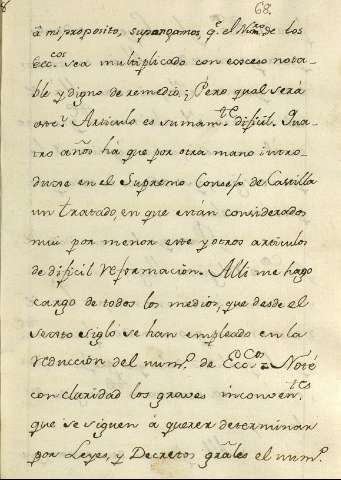 68.
â mi proposito, supongamos q.e el Num.ro de los
Ecc.cos sea multiplicado con exceso nota-
ble y digno de remedio; ¿Pero qual será
este? Articulo es sumam.te dificil. Qua-
tro años há que por otra mano intro-
duxe en el Supremo Consejo de Castilla
un tratado, en que están considerados
mui por menor este y otros articulos
de dificil reformacion. Alli me hago
cargo de todos los medios, que desde el
sexto siglo se han empleado en la
reduccion del num.o de Ecc.cos = Noté
con claridad los graves inconven.tes
que se siguen á querer determinar
por Leyes, y Decretos grâles el num.o